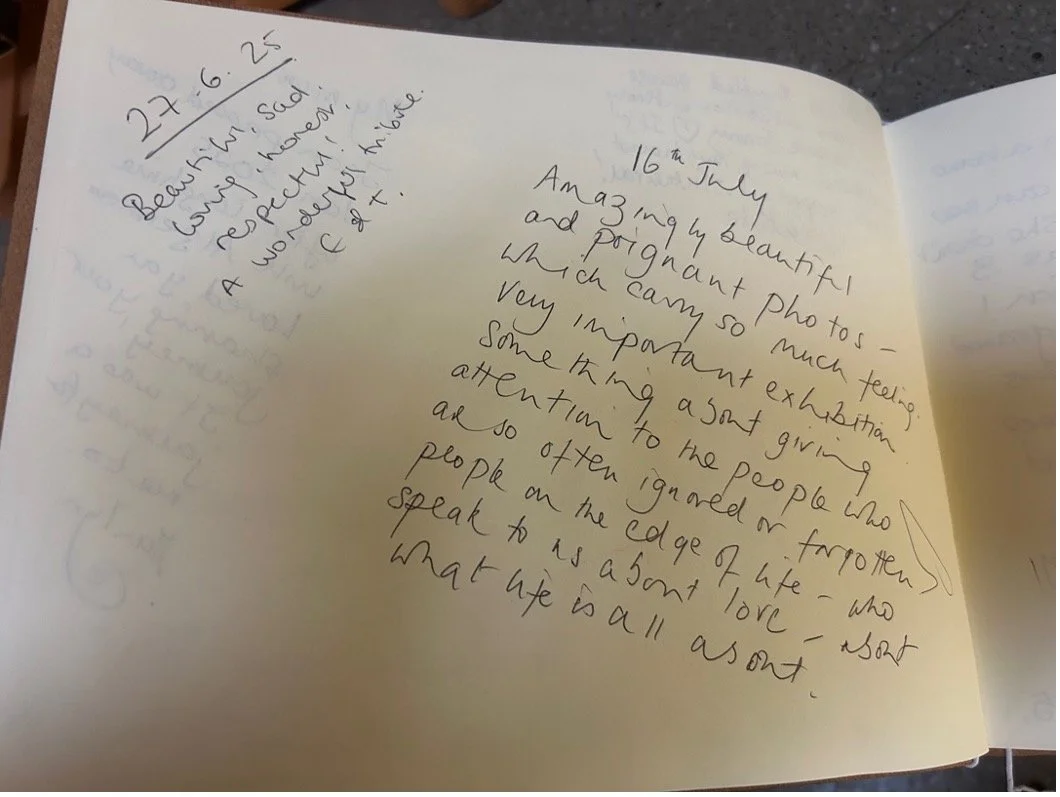 27.6.25
Beautiful, sad.
loving, honest.
respectful!
A wonderful tribute.
16th July
Amazingly beautiful
and poignant photos –
which carry so much feeling.
Very important exhibition
something about giving
attention to the people who
are so often ignored or forgotten
people on the edge of life – who
speak to us about love – about
what life is all about.